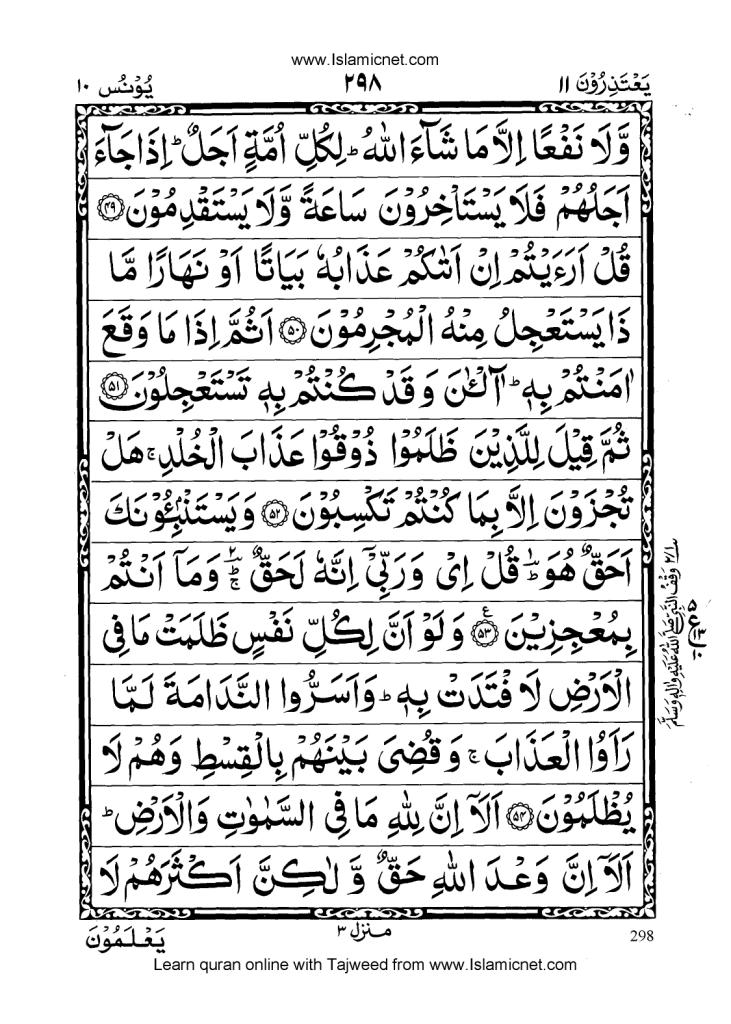 www.Islamicnet.com
يَعْتَذِرُوْنَ ١١
٢٩٨
يُوْنُس ١٠
وَّلَا نَفْعًا اِلَّا مَا شَآءَ اللّٰهُ ؕ لِكُلِّ اُمَّةٍ اَجَلٌ ؕ اِذَا جَآءَ
اَجَلُهُمْ فَلَا يَسْتَاْخِرُوْنَ سَاعَةً وَّلَا يَسْتَقْدِمُوْنَ ۝۴۹
قُلْ اَرَءَيْتُمْ اِنْ اَتٰىكُمْ عَذَابُهٗ بَيَاتًا اَوْ نَهَارًا مَّا
ذَا يَسْتَعْجِلُ مِنْهُ الْمُجْرِمُوْنَ ۝۵۰ اَثُمَّ اِذَا مَا وَقَعَ
اٰمَنْتُمْ بِهٖ ؕ آلْـٰٔنَ وَ قَدْ كُنْتُمْ بِهٖ تَسْتَعْجِلُوْنَ ۝۵۱
ثُمَّ قِيْلَ لِلَّذِيْنَ ظَلَمُوْا ذُوْقُوْا عَذَابَ الْخُلْدِ ۚ هَلْ
تُجْزَوْنَ اِلَّا بِمَا كُنْتُمْ تَكْسِبُوْنَ ۝۵۲ وَيَسْتَنْۢبِـُٔوْنَكَ
اَحَقٌّ هُوَ ؕ قُلْ اِيْ وَرَبِّيْۤ اِنَّهٗ لَحَقٌّ ؔۚ وَمَاۤ اَنْتُمْ
بِمُعْجِزِيْنَ ۝۵۳ ع وَلَوْ اَنَّ لِكُلِّ نَفْسٍ ظَلَمَتْ مَا فِي
الْاَرْضِ لَا فْتَدَتْ بِهٖ ؕ وَاَسَرُّوا النَّدَامَةَ لَمَّا
رَاَوُا الْعَذَابَ ۚ وَقُضِيَ بَيْنَهُمْ بِالْقِسْطِ وَهُمْ لَا
يُظْلَمُوْنَ ۝۵۴ اَلَاۤ اِنَّ لِلّٰهِ مَا فِي السَّمٰوٰتِ وَالْاَرْضِ ؕ
اَلَاۤ اِنَّ وَعْدَ اللّٰهِ حَقٌّ وَّ لٰكِنَّ اَكْثَرَهُمْ لَا
وَقْفُ النَّبِيِّ صَلَّى اللّٰهُ عَلَيْهِ وَاٰلِهٖ وَسَلَّمَ
يَعْلَمُوْنَ
منزل ٣
298
Learn quran online with Tajweed from www.Islamicnet.com